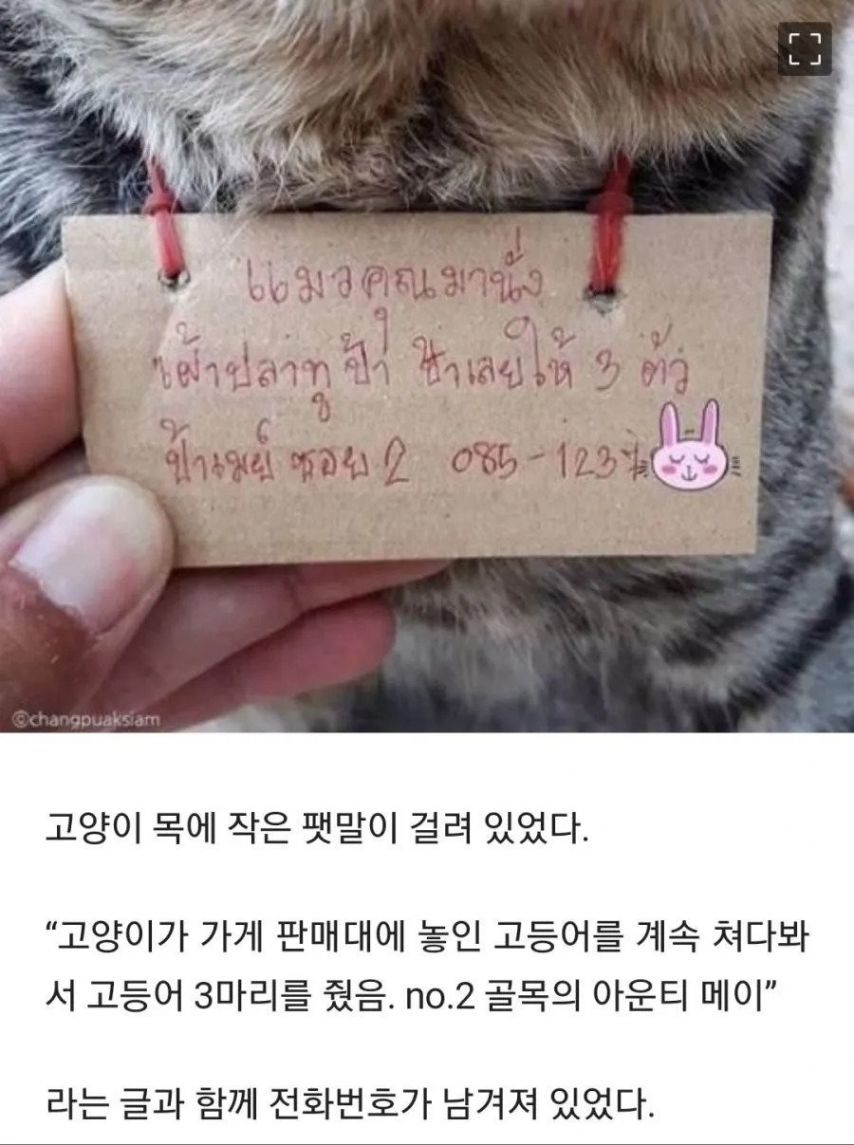 แมวคุณมานั่ง
เฝ้าปลาทูป้า ป้าเลยให้ 3 ตัว
ป้าเมย์ ซอย 2 085-123
©changpuaksiam
고양이 목에 작은 팻말이 걸려 있었다.
“고양이가 가게 판매대에 놓인 고등어를 계속 쳐다봐
서 고등어 3마리를 줬음. no.2 골목의 아운티 메이”
라는 글과 함께 전화번호가 남겨져 있었다.